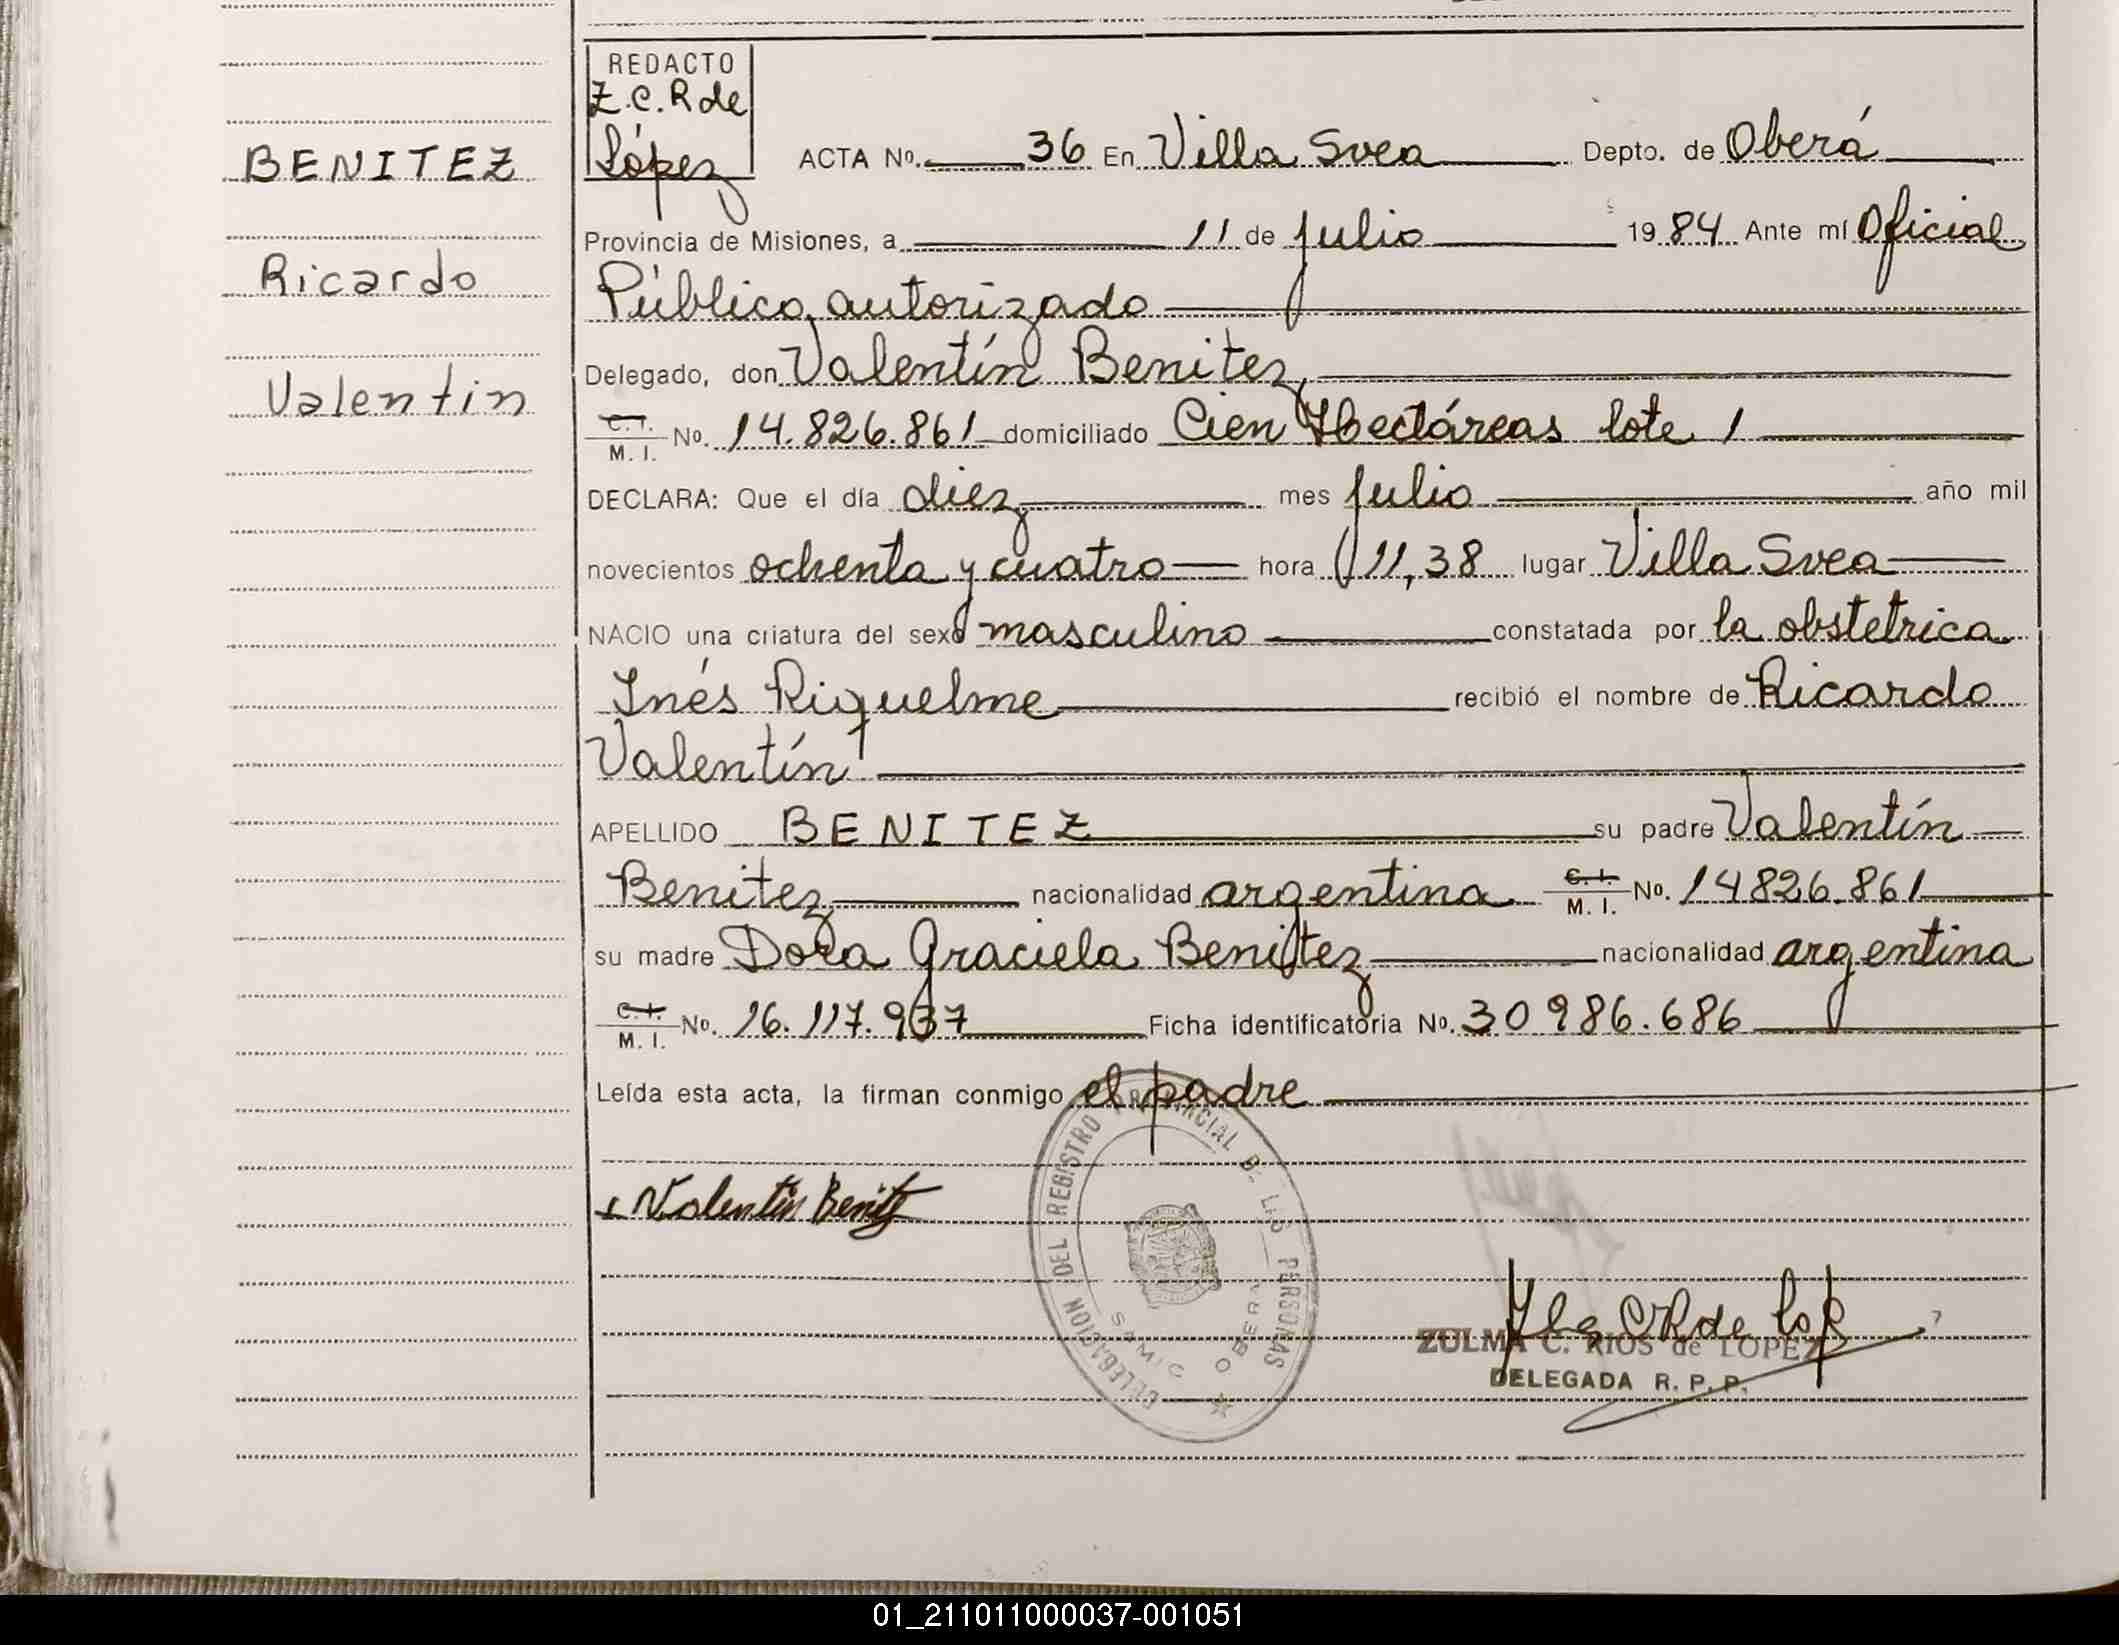 BENITEZ
Ricardo
Valentin
REDACTO
Z.C.R de
López
ACTA No. 36 En Villa Svea Depto. de Oberá
Provincia de Misiones, a 11 de julio 1984 Ante mí Oficial
Público autorizado
Delegado, don Valentín Benitez
C.I. M.I. No. 14.826.861 domiciliado Cien Hectáreas lote 1
DECLARA: Que el día diez mes julio año mil
novecientos ochenta y cuatro hora 11,38 lugar Villa Svea
NACIO una criatura del sexo masculino constatada por la obstetrica
Inés Riquelme recibió el nombre de Ricardo
Valentín
APELLIDO BENITEZ su padre Valentín
Benitez nacionalidad argentina C.I. M.I. No. 14826.861
su madre Dora Graciela Benitez nacionalidad argentina
C.I. M.I. No. 16.117.937 Ficha identificatoria No. 30986.686
Leída esta acta, la firman conmigo el padre
Valentín Benitez
DELEGACION DEL REGISTRO PROVINCIAL DE LAS PERSONAS
SAMIC OBERA
ZULMA C. RIOS de LOPEZ
DELEGADA R. P. P.
01_211011000037-001051